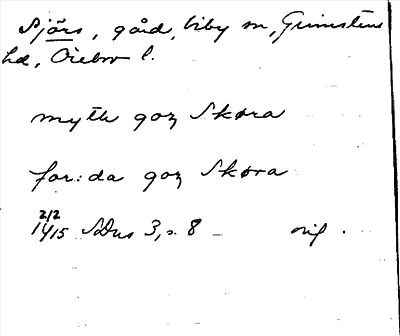 Sjörs, gård, Viby sn, Grimstens
hd, Örebro l.
mýtt goz Skøra
for:da goz Skøra
2/2
1415 SDns 3, s. 8 orig.